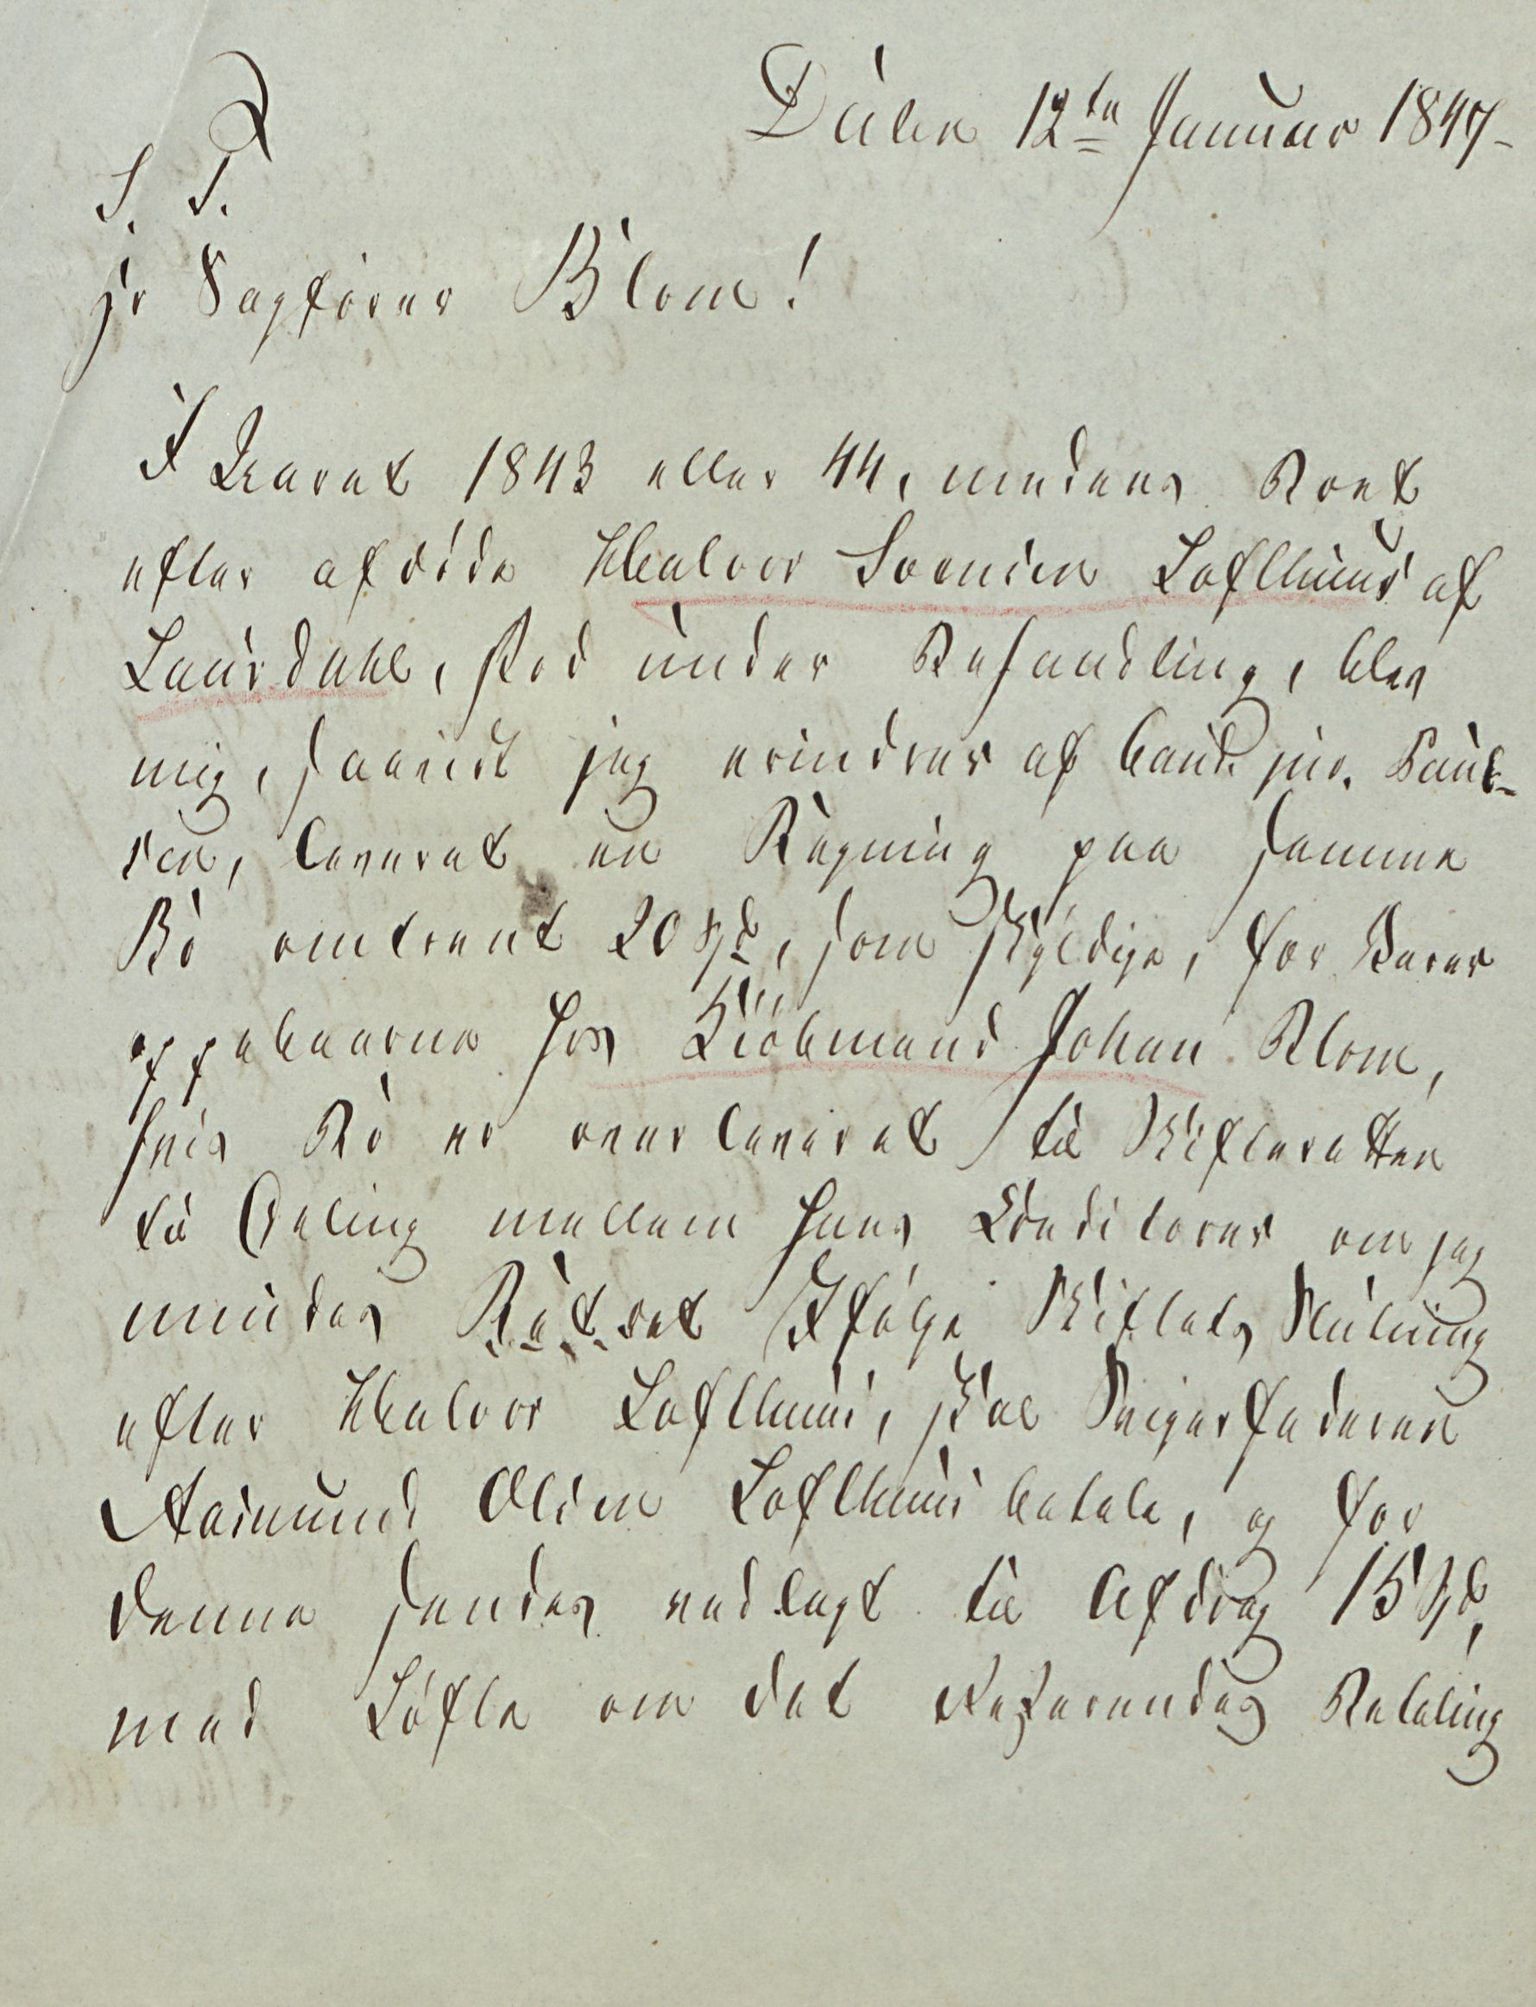 Dalen 12te Januar 1847-
S. T.
Hr Sagfører Blom!
I Aaret 1843 eller 44, medens Boet
efter afdøde Halvor Svensen Lofthuus af
Laurdahl, stod under Behandling, blev
mig, saavidt jeg erindrer af Cand. jur. Paul-
sen, leveret en Regning paa samme
Bo omtrent 20 Spd, som skyldige, for Varer
opgebaarne hos Kiøbmand Johan Blom,
hvis Bo er overleveret til Skifteretten
til Deling mellem hans Creditorer om jeg
mindes Rettet. Ifølge Skiftets Slutning
efter Halvor Lofthuus, skal Svigerfaderen
Aasmund Olsen Lofthuus betale, og for
denne sendes vedlagt til Afdrag 15 Spd,
med Løfte om det Resterendes Betaling